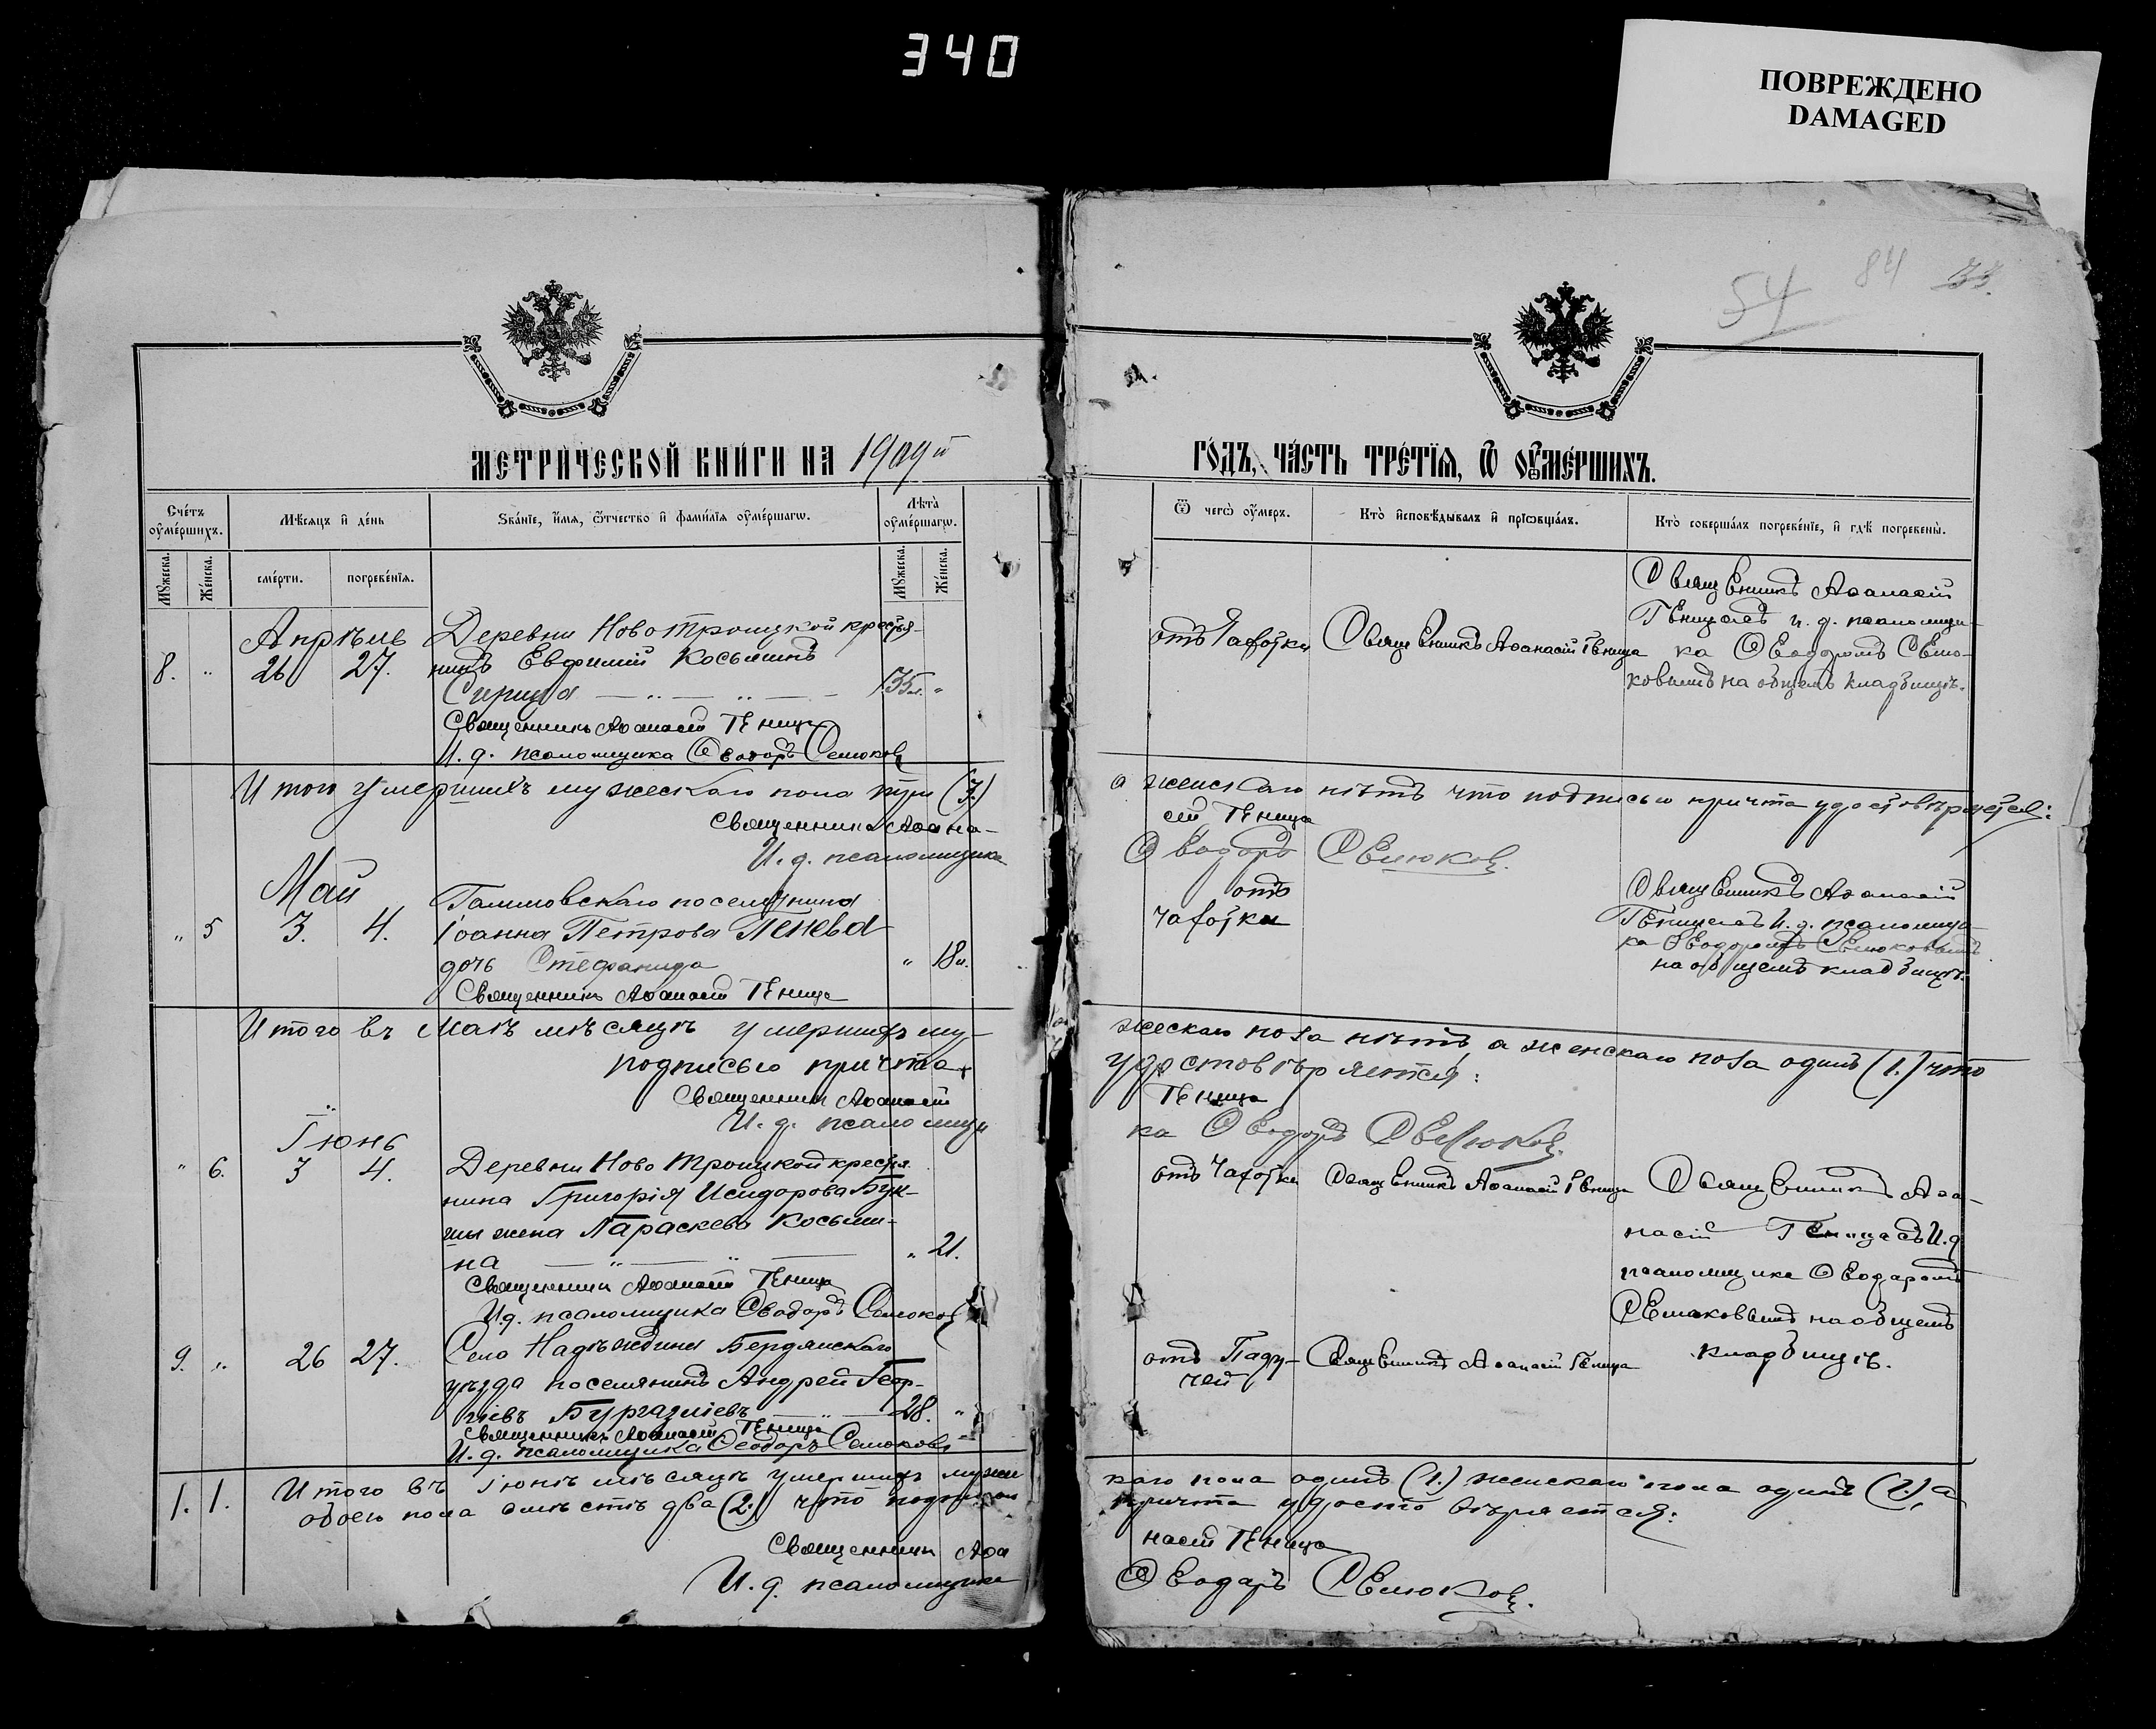 340
ПОВРЕЖДЕНО
DAMAGED
54 84
МЕТРИ́ЧЕСКОЙ КНИ́ГИ НА 1909й
ГО́ДЪ, ЧА́СТЬ ТРЕ́ТЇѦ, Ѿ ОУ҆МЕ́РШИХЪ.
Сче́тъ оу҆ме́ршихъ.
Мѣ́сяцъ и҆ де́нь
Зва́нїе, и҆́мя, ѻ҆́тчество и҆ фами́лїя оу҆ме́ршагѡ.
Лѣ́та оу҆ме́ршагѡ.
Ѿ чегѡ̀ оу҆́меръ.
Кто̀ и҆сповѣ́дывалъ и҆ прїѡбща́лъ.
Кто̀ соверша́лъ погребе́нїе, и҆ гдѣ̀ погребены̀.
Мꙋ́жеска.
Же́нска.
сме́рти.
погребе́нїя.
Мꙋ́жеска.
Же́нска.
Апрѣль
8. " 26 27.
Деревни Новотроицкой крестья-
нинъ Евфимій Косьминъ
35 л. "
Священникъ Аѳанасій Геница
И. д. псаломщика Ѳеодоръ Семюковъ
отъ Чахотки
Священникъ Аѳанасій Геница
Священникъ Аѳанасій
Геница съ и. д. псаломщи-
ка Ѳеодоромъ Семю-
ковымъ на общемъ кладбищѣ.
Итого умершихъ мужескаго пола три (3.)
а женскаго нѣтъ что подписью причта удостовѣряется:
Священникъ Аѳана-
сій Геница
И. д. псаломщика
Ѳеодоръ Семюковъ.
Май
" 5 3. 4.
поселянина
Іоанна Петрова Пенева
дочь Стефанида
" 18 л.
Священникъ Аѳанасій Геница
отъ
Чахотки
Священникъ Аѳанасій
Геница съ И. д. псаломщи-
ка Ѳеодоромъ Семюковымъ
на общемъ кладбищѣ.
Итого въ Маѣ мѣсяцѣ умершихъ му-
жескаго пола нѣтъ, а женскаго пола одинъ (1.) что
подписью причта
удостовѣряется:
Священникъ Аѳанасій
Геница
И. д. псаломщи
ка Ѳеодоръ Семюковъ.
Іюнь
" 6. 3 4.
Деревни Ново Троицкой крестья
нина Григорія Исидорова Бук-
шы жена Параскева Косьми-
на " 21.
Священникъ Аѳанасій Геница
И. д. псаломщика Ѳеодоръ Семюковъ
отъ Чахотки
Священникъ Аѳанасій Геница
Священникъ Аѳа-
насій Геница съ И. д
псаломщика Ѳеодоромъ
Семюковымъ на общемъ
кладбищѣ.
9. " 26 27.
Села Надеждина Бердянскаго
уѣзда поселянинъ Андрей Геор-
гіевъ 28. "
Священникъ Аѳанасій Геница
И. д. псаломщика Ѳеодоръ Семюковъ
отъ Паду-
чей
Священникъ Аѳанасій Геница
1. 1.
Итого въ Іюнѣ мѣсяцѣ умершихъ мужес
каго пола одинъ (1.) женскаго пола одинъ (1.) а
обоего пола вмѣстѣ два (2.) что подписью
причта удостовѣряется:
Священникъ Аѳа
насій Геница
И. д. псаломщика
Ѳеодоръ Семюковъ.